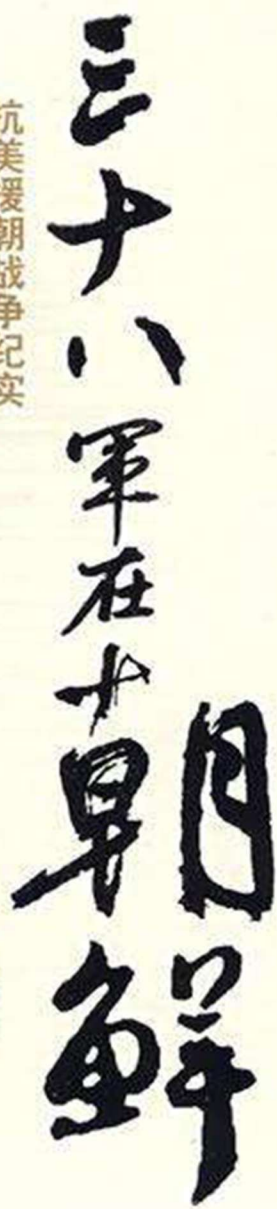 三十八軍在朝鮮
抗美援朝战争纪实